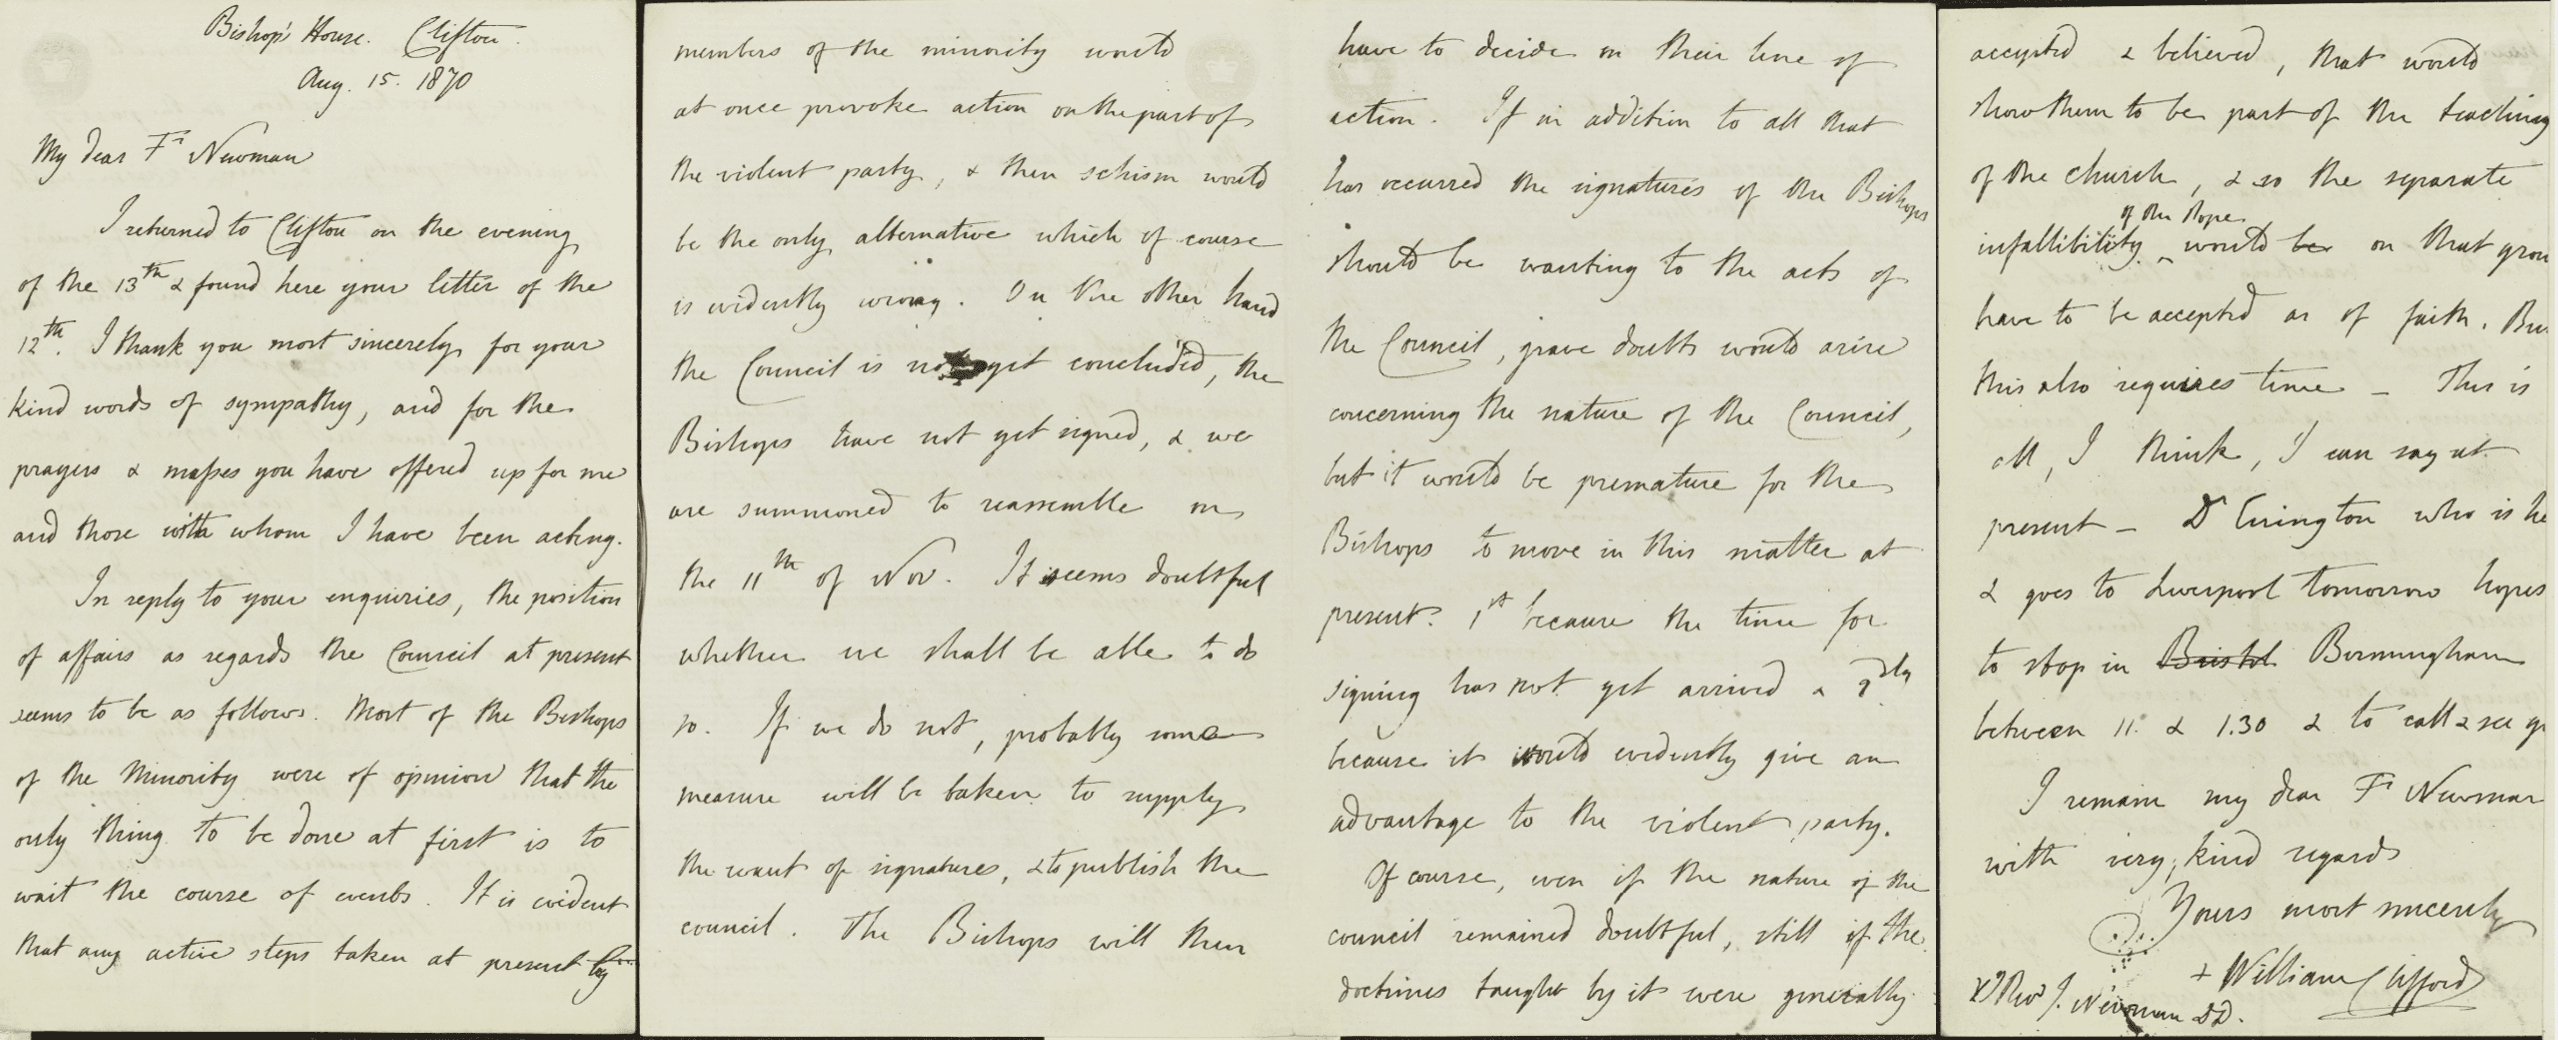 Bishop's House. Clifton.
Aug. 15. 1870
My dear Fr Newman
I returned to Clifton on the evening
of the 13th & found here your letter of the
12th. I thank you most sincerely for your
kind words of sympathy, and for the
prayers & masses you have offered up for me
and those with whom I have been acting.
In reply to your enquiries, the position
of affairs as regards the Council at present
seems to be as follows. Most of the Bishops
of the Minority were of opinion that the
only thing to be done at first is to
wait the course of events. It is evident
that any active steps taken at present by
members of the minority would
at once provoke action on the part of
the violent party, & then schism would
be the only alternative which of course
is evidently wrong. On the other hand
the Council is not yet concluded, the
Bishops have not yet signed, & we
are summoned to reassemble on
the 11th of Nov. It seems doubtful
whether we shall be able to do
so. If we do not, probably some
measure will be taken to supply
the want of signatures, & to publish the
council. The Bishops will then
have to decide on their line of
action. If in addition to all that
has occurred the signatures of the Bishops
should be wanting to the acts of
the Council, grave doubts would arise
concerning the nature of the Council,
but it would be premature for the
Bishops to move in this matter at
present. 1st because the time for
signing has not yet arrived & 2dly
because it would evidently give an
advantage to the violent party.
Of course, even if the nature of the
council remained doubtful, still if the
doctrines taught by it were generally
accepted & believed, that would
show them to be part of the teaching
of the church, & so the separate
of the Pope
infallibility would be on that grou
have to be accepted as of faith. Bu
this also requires time – This is
all, I think, I can say at
present – Dr Errington who is he
& goes to Liverpool tomorrow hopes
to stop in Bristol Birmingham
between 11. & 1.30 & to call & see y
I remain my dear Fr Newman
with very kind regards
Yours most sincerely
+ William Clifford
V Revd J. Newman DD.